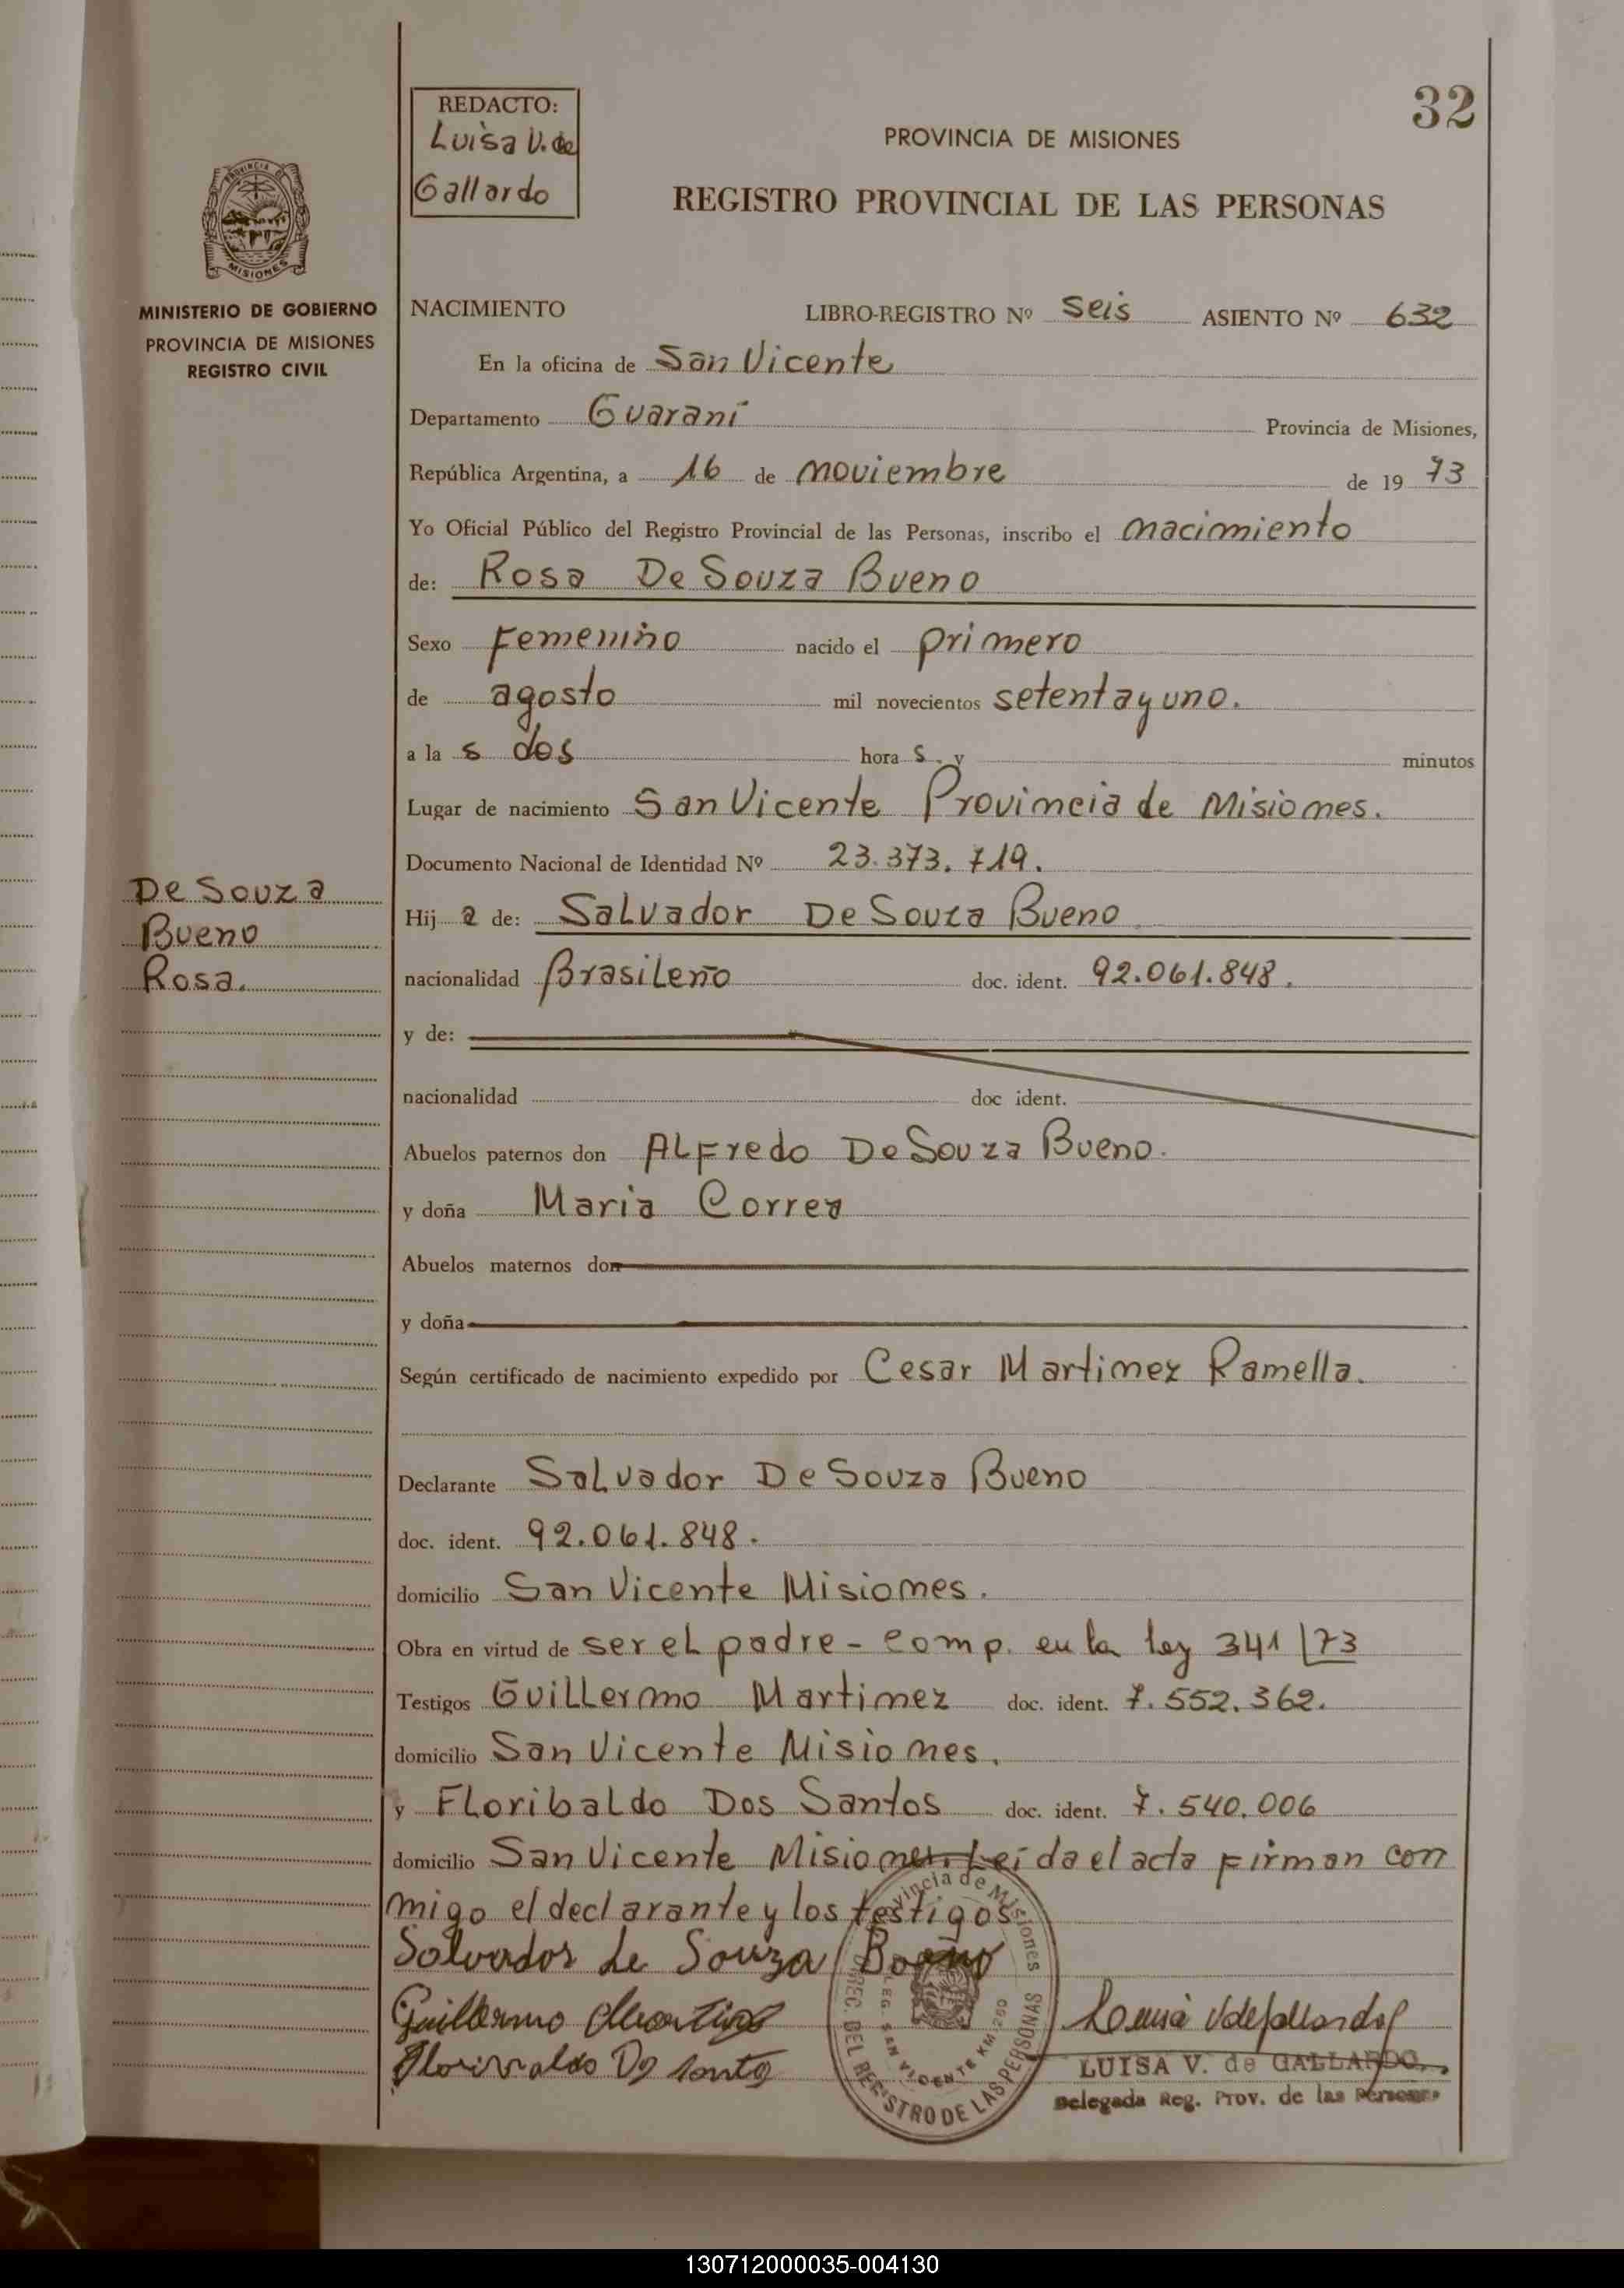 32
REDACTO:
Luisa V. de
Gallardo
PROVINCIA DE MISIONES
REGISTRO PROVINCIAL DE LAS PERSONAS
PROVINCIA DE
MISIONES
MINISTERIO DE GOBIERNO
PROVINCIA DE MISIONES
REGISTRO CIVIL
NACIMIENTO LIBRO-REGISTRO Nº Seis ASIENTO Nº 632
En la oficina de San Vicente
Departamento Guaraní Provincia de Misiones,
República Argentina, a 16 de noviembre de 19 73
Yo Oficial Público del Registro Provincial de las Personas, inscribo el nacimiento
de: Rosa De Souza Bueno
Sexo Femenino nacido el primero
de agosto mil novecientos setenta y uno.
a la s dos hora s. y minutos
Lugar de nacimiento San Vicente Provincia de Misiones.
Documento Nacional de Identidad Nº 23.373.719.
De Souza
Bueno
Rosa.
Hij a de: Salvador De Souza Bueno
nacionalidad Brasileño doc. ident. 92.061.848.
y de:
nacionalidad doc ident.
Abuelos paternos don Alfredo De Souza Bueno.
y doña Maria Correa
Abuelos maternos don
y doña
Según certificado de nacimiento expedido por Cesar Martinez Ramella.
Declarante Salvador De Souza Bueno
doc. ident. 92.061.848.
domicilio San Vicente Misiones.
Obra en virtud de ser el padre - comp. en la ley 341/73
Testigos Guillermo Martinez doc. ident. 7.552.362.
domicilio San Vicente Misiones.
y Floribaldo Dos Santos doc. ident. 7.540.006
domicilio San Vicente Misiones. Leída el acta firman con
migo el declarante y los testigos
Salvador de Souza Bueno
Guillermo Martinez
Florivaldo Do Santo
Provincia de Misiones
REC. DEL REGISTRO DE LAS PERSONAS
LEG. SAN VICENTE KM 260
Luisa V de Gallardo
LUISA V. de GALLARDO
Delegada Reg. Prov. de las Personas
130712000035-004130